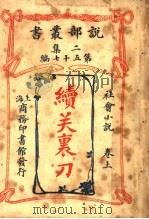 說部叢書
二集
第五十七編
社會小說
卷上
續笑裏刀
上海商務印書館發行